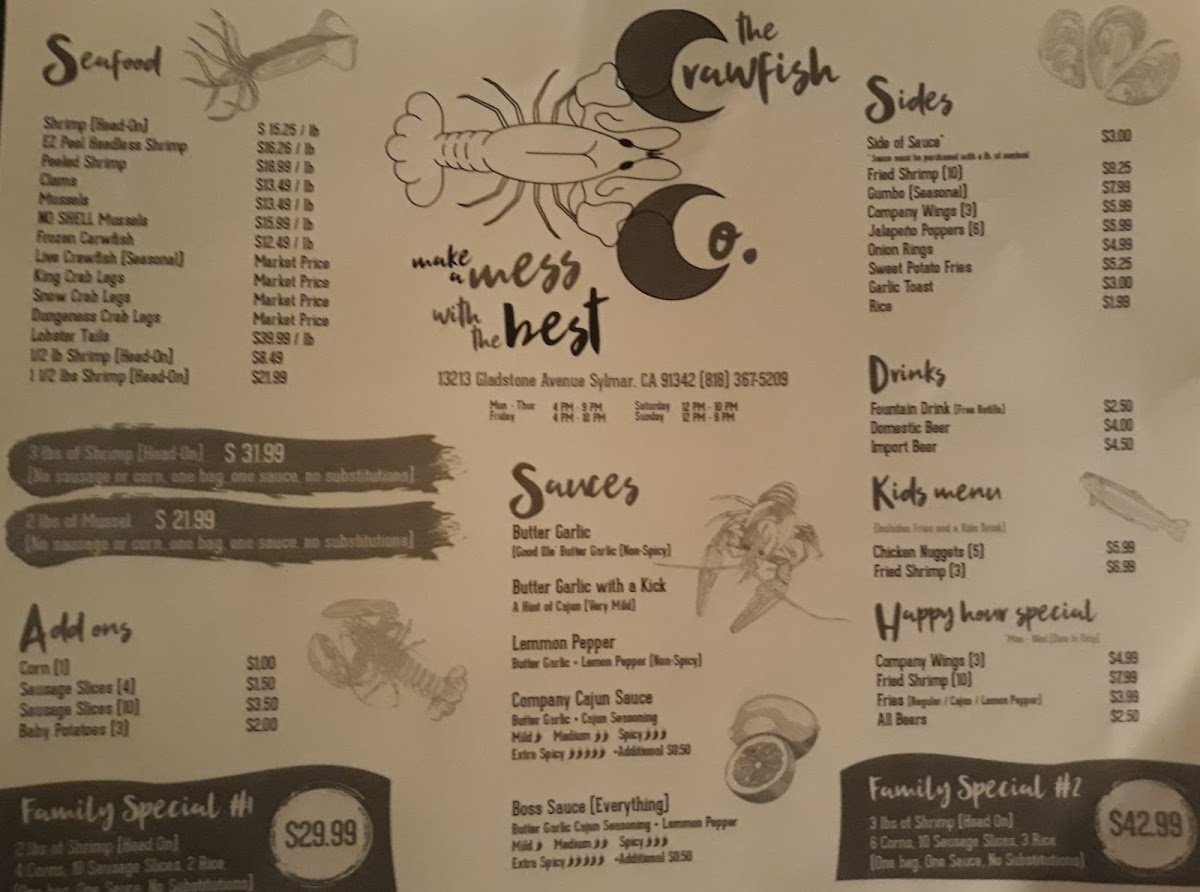 Seafood
Shrimp [Head-On] $ 15.25 / lb
EZ Peel Headless Shrimp $16.26 / lb
Peeled Shrimp $18.99 / lb
Clams $13.49 / lb
Mussels $13.49 / lb
NO SHELL Mussels $15.99 / lb
Frozen Carwfish $12.49 / lb
Live Crawfish [Seasonal] Market Price
King Crab Legs Market Price
Snow Crab Legs Market Price
Dungeness Crab Legs Market Price
Lobster Tails $39.99 / lb
1/2 lb Shrimp [Head-On] $8.49
1 1/2 lbs Shrimp [Head-On] $21.99
3 lbs of Shrimp [Head-On] $ 31.99
[No sausage or corn, one bag, one sauce, no substitutions]
2 lbs of Mussel $ 21.99
[No sausage or corn, one bag, one sauce, no substitutions]
Add ons
Corn [1] $1.00
Sausage Slices [4] $1.50
Sausage Slices [10] $3.50
Baby Potatoes [3] $2.00
Family Special #1
$29.99
2 lbs of Shrimp [Head On]
4 Corns, 10 Sausage Slices, 2 Rice
[One bag, One Sauce, No Substitutions]
the
Crawfish
Co.
make
a mess
with
the best
13213 Gladstone Avenue Sylmar, CA 91342 [818] 367-5209
Mon - Thur 4 PM - 9 PM Saturday 12 PM - 10 PM
Friday 4 PM - 10 PM Sunday 12 PM - 9 PM
Sauces
Butter Garlic
[Good Ole' Butter Garlic [Non-Spicy]
Butter Garlic with a Kick
A Hint of Cajun [Very Mild]
Lemmon Pepper
Butter Garlic + Lemon Pepper [Non-Spicy]
Company Cajun Sauce
Butter Garlic + Cajun Seasoning
Mild Medium Spicy
Extra Spicy +Additional $0.50
Boss Sauce [Everything]
Butter Garlic Cajun Seasoning + Lemmon Pepper
Mild Medium Spicy
Extra Spicy +Additional $0.50
Sides
Side of Sauce* $3.00
*Sauce must be purchased with a lb. of seafood
Fried Shrimp [10] $9.25
Gumbo [Seasonal] $7.99
Company Wings [3] $5.99
Jalapeño Poppers [6] $5.99
Onion Rings $4.99
Sweet Potato Fries $5.25
Garlic Toast $3.00
Rice $1.99
Drinks
Fountain Drink [Free Refills] $2.50
Domestic Beer $4.00
Import Beer $4.50
Kids menu
[Includes Fries and a Kids Drink]
Chicken Nuggets [5] $5.99
Fried Shrimp [3] $6.99
Happy hour special
*Mon - Wed [Dine in Only]
Company Wings [3] $4.99
Fried Shrimp [10] $7.99
Fries [Regular / Cajun / Lemon Pepper] $3.99
All Beers $2.50
Family Special #2
$42.99
3 lbs of Shrimp [Head On]
6 Corns, 10 Sausage Slices, 3 Rice
[One bag, One Sauce, No Substitutions]